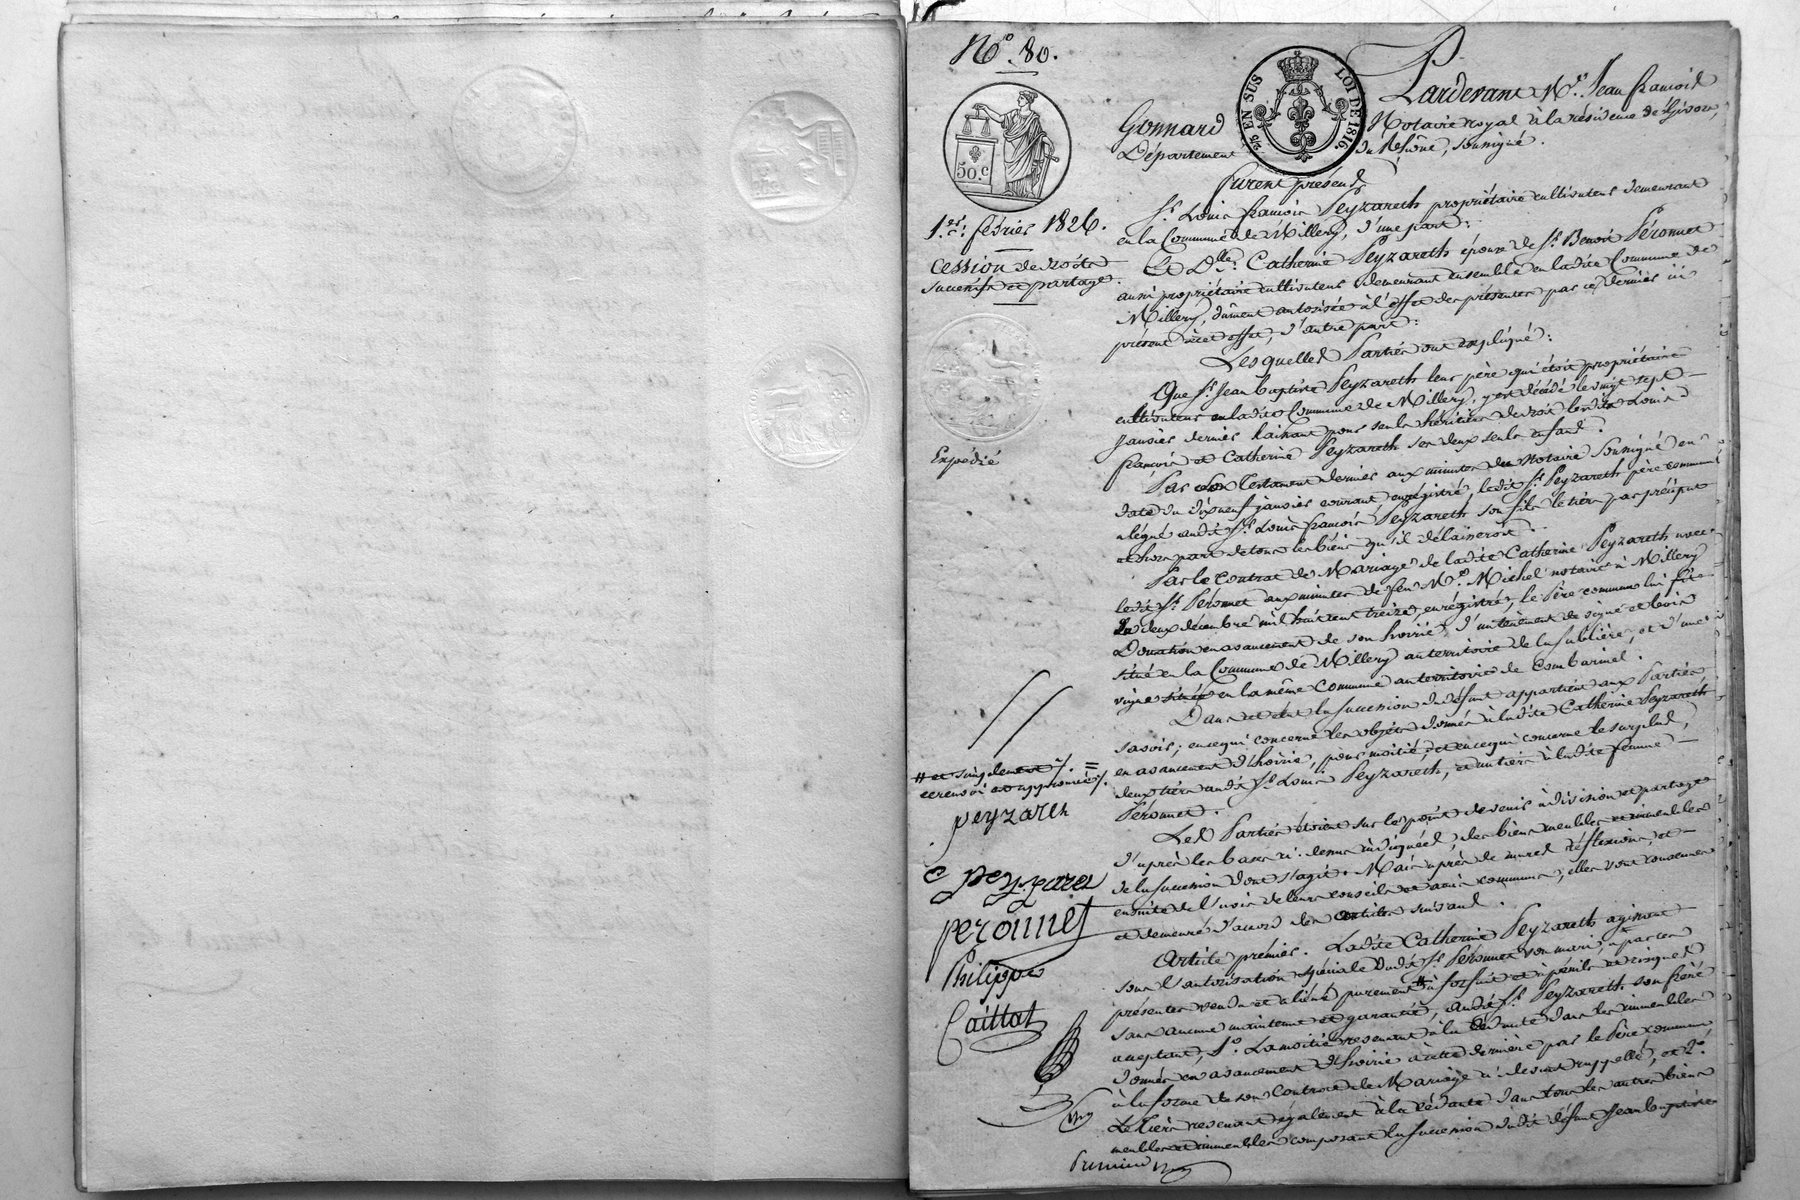 N.º 80.
50.c
2/5 EN SUS LOI DE 1816.
1.er février 1826.
cession de droits
successifs et partage.
Expédié
Pardevant M.e Jean françois
Gonnard Notaire royal à la résidence de Givors,
Département du Rhône, soussigné.
furent présens
S.r Louis françois Peyzareth propriétaire cultivateur demeurant
en la Commune de Millery, d'une part;
Et D.lle Catherine Peyzareth épouse de S.r Benoit Péronnet
aussi propriétaire cultivateur demeurant ensemble en ladite Commune de
Millery, dûment autorisée à l'effet des présentes par ce dernier ici
présent à cet effet, d'autre part:
Lesquelles Parties ont expliqué:
Que S.r Jean Baptiste Peyzareth leur père qui étoit propriétaire
cultivateur en ladite Commune de Millery, y est décédé le vingt sept
janvier dernier laissant pour seuls héritiers de droit lesdits Louis
françois et Catherine Peyzareth ses deux seuls enfans.
Par son Testament dernier aux minutes du Notaire soussigné en
date du dixneuf janvier courant, enregistré, ledit S.r Peyzareth père commun
a légué audit S.r Louis françois Peyzareth son fils le tiers par préciput
et hors part de tous les biens qu'il délaisseroit.
Par le Contrat de Mariage de ladite Catherine Peyzareth avec
ledit S.r Péronnet aux minutes de feu M.e Michel notaire à Millery
du deux décembre mil huit cent treize, enregistré, le Père commun lui fit
Donation en avancement de son hoirie, d'un tènement de vigne et bois
situé en la Commune de Millery au territoire de la sublière, et d'une
vigne située en la même Commune au territoire de Combarinel.
Dans cet état la succession du défunt appartient aux Parties
savoir; en ce qui concerne les objets donnés à ladite Catherine Peyzareth
en avancement d'hoirie, pour moitié, et en ce qui concerne le surplus,
deux tiers audit S.r Louis Peyzareth, et un tiers à ladite femme
Péronnet.
Les Parties étoient sur le point de venir à division et partage
d'après les bases ci-dessus indiquées, des biens meubles et immeubles
de la succession dont s'agit. Mais après de mures réflexions, et
ensuite de l'avis de leurs conseils et amis communs, elles sont convenues
et demeuré d'accord des articles suivans.
Article premier. Ladite Catherine Peyzareth agissant
sous l'autorisation spéciale dudit S.r Péronnet son mari, a par ces
présentes vendu et aliéné purement # à forfait et à périls et risques
sans aucune maintenue et garantie, audit S.r Peyzareth son frère
acceptant, 1.º La moitié revenant à la cédante dans les immeubles
donnés en avancement d'hoirie à cette dernière par le Père commun
à la forme de son Contrat de Mariage ci-devant rappellé, et 2.º
Le tiers revenant également à la cédante dans tous les autres biens
meubles et immeubles composant la succession dudit défunt Jean baptiste
# et simplement /. =
ce renvoi est approuvé /.
peyzareth
c peyzaret
peronnet
Philippe
Caillat